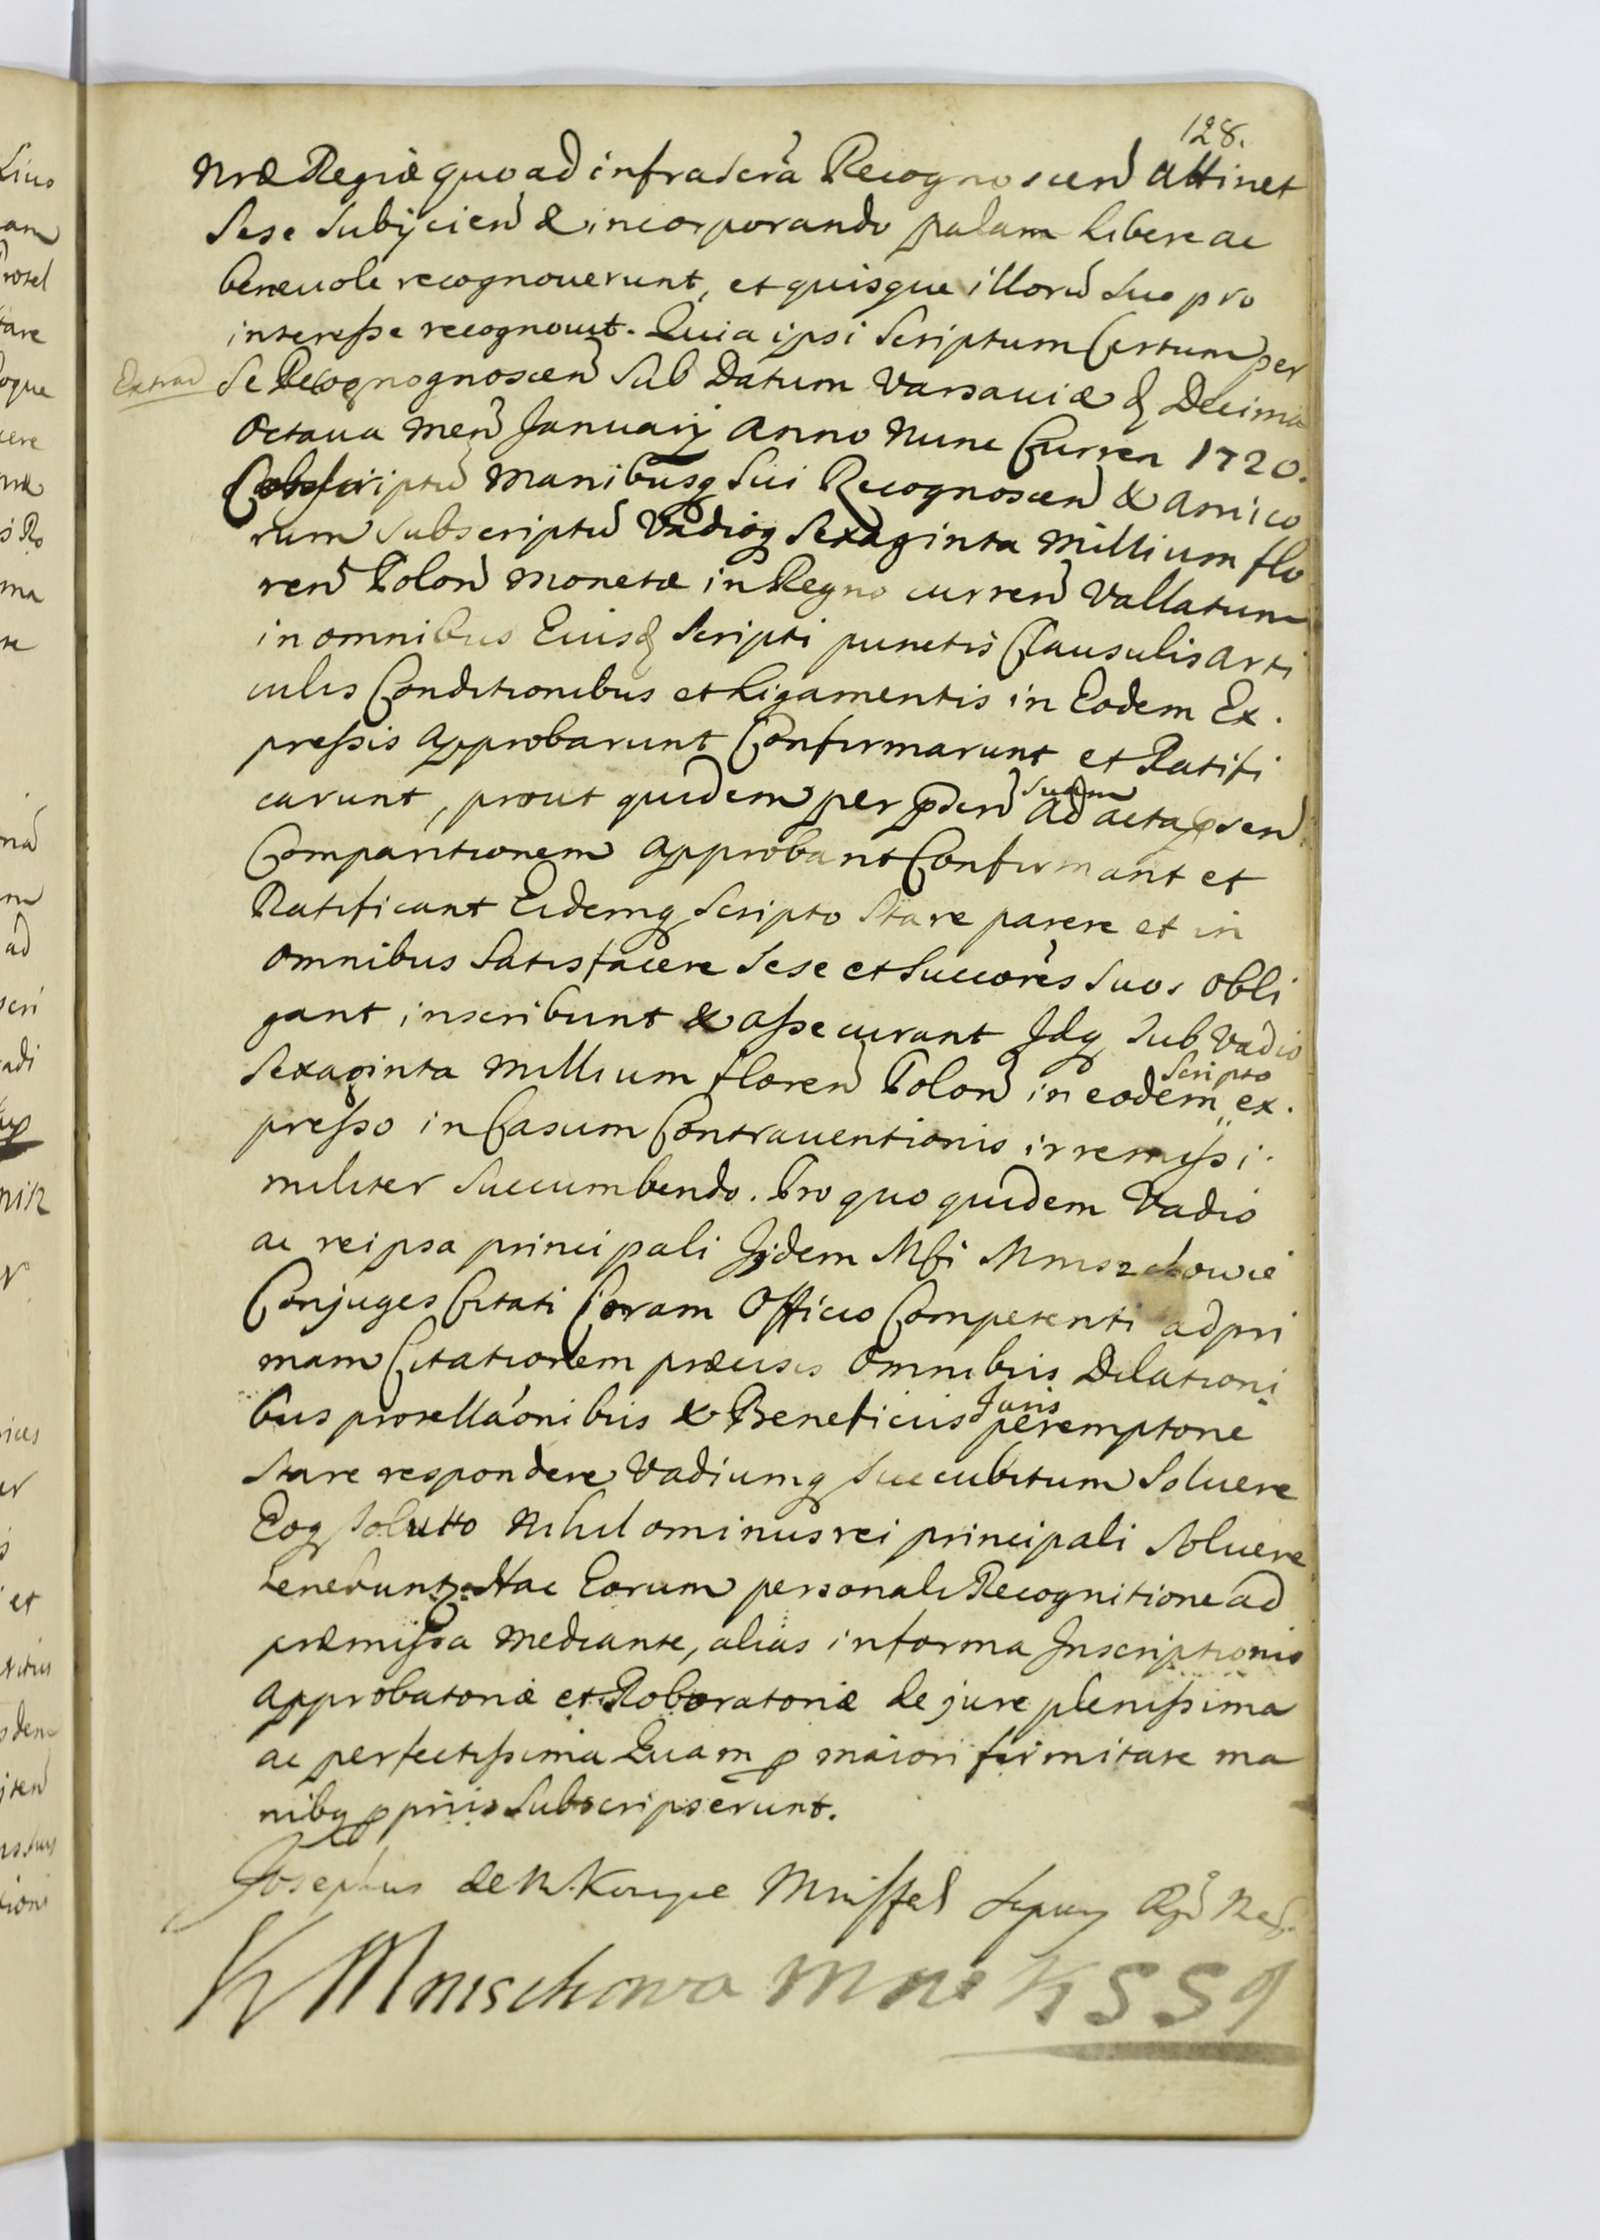 128.
Nræ Regiæ quo ad infrascra Recognoscen attinet
Sese subijcien & incorporando palam libere ac
beneuole recognouerunt, et quisque illoru suo pro
interesse recognouit. Quia ipsi Scriptum Certum per
Extrad
se Recognognoscen sub Datum Varsauiæ d Decima
Octaua men Januarij Anno Nunc Curren 1720.
Conscriptu manibusq sui Recognoscen & Amico
rum subscriptu Vadioq Sexaginta Millium flo
ren Polon monetæ in Regno curren Vallatum
in omnibus Eiusd Scripti punctis Clausulis Arti
culis Conditionibus et Ligamentis in Eodem Ex.
pressis Approbarunt Confirmarunt et Ratifi
carunt, prout quidem per psen suam ad acta psen
Comparitionem Approbant Confirmant et
Ratificant Eidemq Scripto Stare parere et in
omnibus Satisfacere Sese et Succores suos obli
gant inscribunt & assecurant Idq Sub Vadio
Sexaginta Millium floren Polon in eodem Scripto ex.
presso in Casum Contrauentionis irremissi.
mibiliter Succumbendo. Pro quo quidem Vadio
ac rei psa principali Ijdem Mfi Mniszchowie
Conjuges Citati Coram Officio Competenti ad pri
mam Citationem præcisis Omnibus Dilationi
bus prorellaonibus & Beneficiis Juris peremptorie
stare respondere Vadiumq succubitum Soluere
Eoq soluto Nihilominus rei principali Soluere
tenebunt. Hac Eorum personali Recognitione ad
præmissa mediante, alias in forma Inscriptionis
Approbatoriæ et Roboratoriæ de jure plenissima
ac perfectissima Quam p maiori firmitate ma
nibq pprijs Subscripserunt.
Josephus de M. Konze Mniszek Supr Rgni
K Mnischowa Mne K S S g